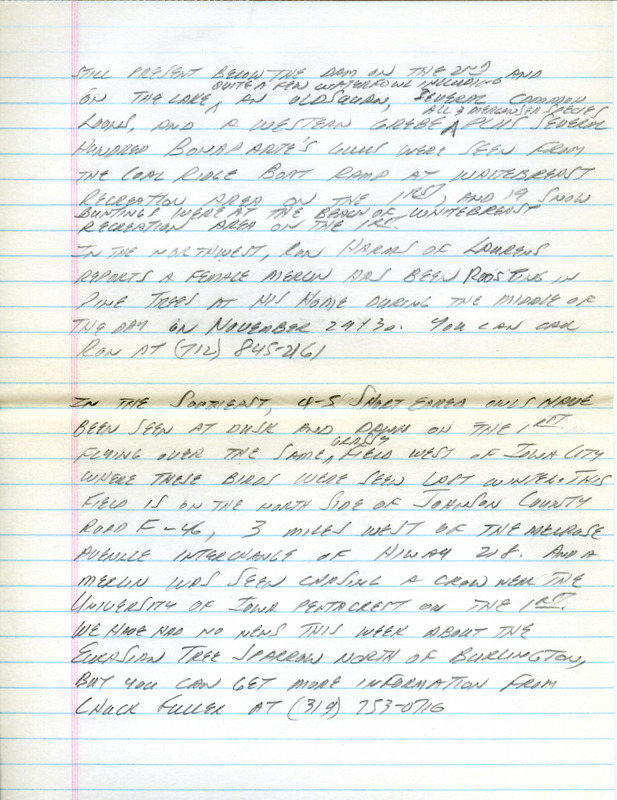 STILL PRESENT BELOW THE DAM ON THE 2ND AND
QUITE A FEW WATERFOWL INCLUDING
ON THE LAKE, AN OLDSQUAW, SEVERAL COMMON
ALL 3 MERGANSER SPECIES
LOONS, AND A WESTERN GREBE PLUS SEVERAL
HUNDRED BONAPARTE'S GULLS WERE SEEN FROM
THE COAL RIDGE BOAT RAMP AT WHITEBREAST
RECREATION AREA ON THE 1RST, AND 19 SNOW
BUNTINGS WERE AT THE BEACH OF WHITEBREAST
RECREATION AREA ON THE 1RST.
IN THE NORTHWEST, RON HARMS OF LAURENS
REPORTS A FEMALE MERLIN HAS BEEN ROOSTING IN
PINE TREES AT HIS HOME DURING THE MIDDLE OF
THE DAY ON NOVEMBER 29/30. YOU CAN CALL
RON AT (712) 845-2161
IN THE SOUTHEAST, 4-5 SHORT EARED OWLS HAVE
BEEN SEEN AT DUSK AND DAWN ON THE 1RST
GRASSY
FLYING OVER THE SAME FIELD WEST OF IOWA CITY
WHERE THESE BIRDS WERE SEEN LAST WINTER. THIS
FIELD IS ON THE NORTH SIDE OF JOHNSON COUNTY
ROAD F-46, 3 MILES WEST OF THE MELROSE
AVENUE INTERCHANGE OF HIWAY 218. AND A
MERLIN WAS SEEN CHASING A CROW NEAR THE
UNIVERSITY OF IOWA PENTACREST ON THE 1RST.
WE HAVE HAD NO NEWS THIS WEEK ABOUT THE
EURASIAN TREE SPARROW NORTH OF BURLINGTON,
BUT YOU CAN GET MORE INFORMATION FROM
CHUCK FULLER AT (319) 753-0716